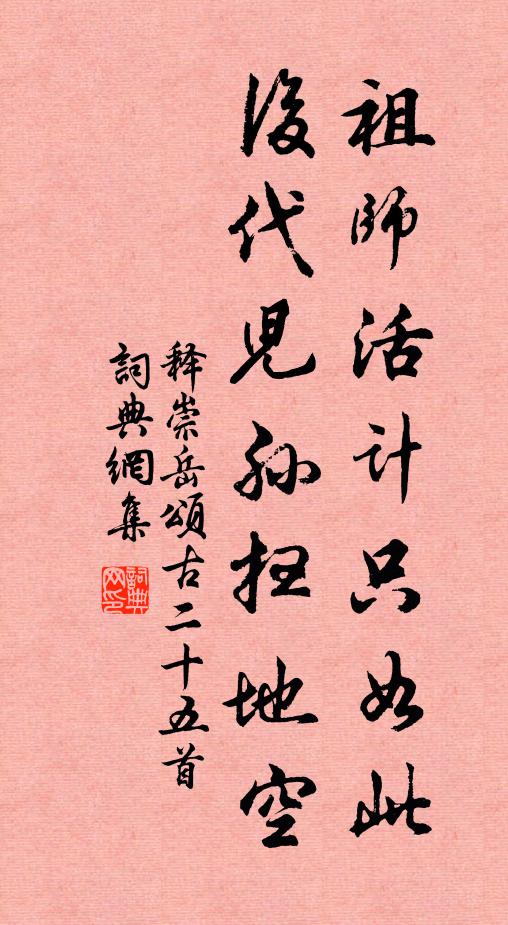 祖師活計只如此
後代児孙扫地空
释崇岳頌古二十五首
詞典網集
詞典网印